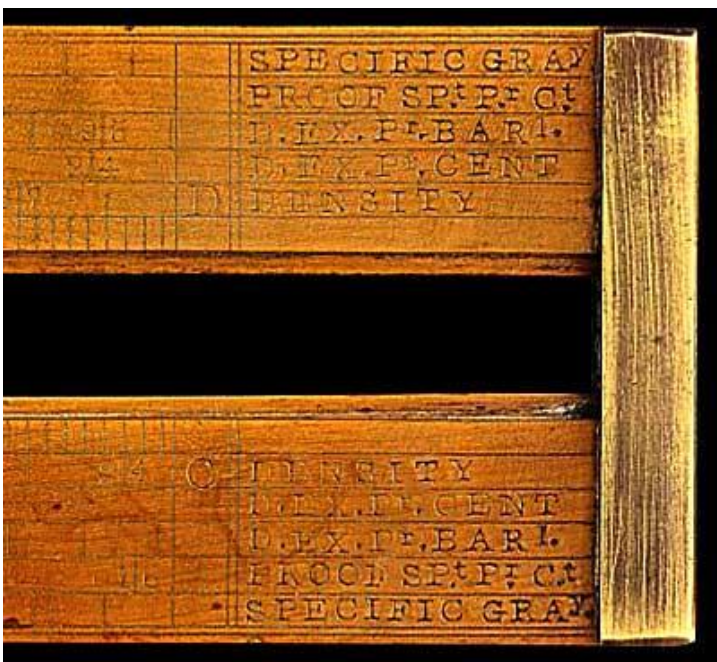 SPECIFIC GRAY
PROOF SP.t P.r C.t
D.EX.Pr.BARl.
24 D.EX.Pr.CENT
D DENSITY
C DENSITY
D.EX.Pr.CENT
D.EX.Pr.BARl.
PROOF SP.t P.r C.t
SPECIFIC GRAY.